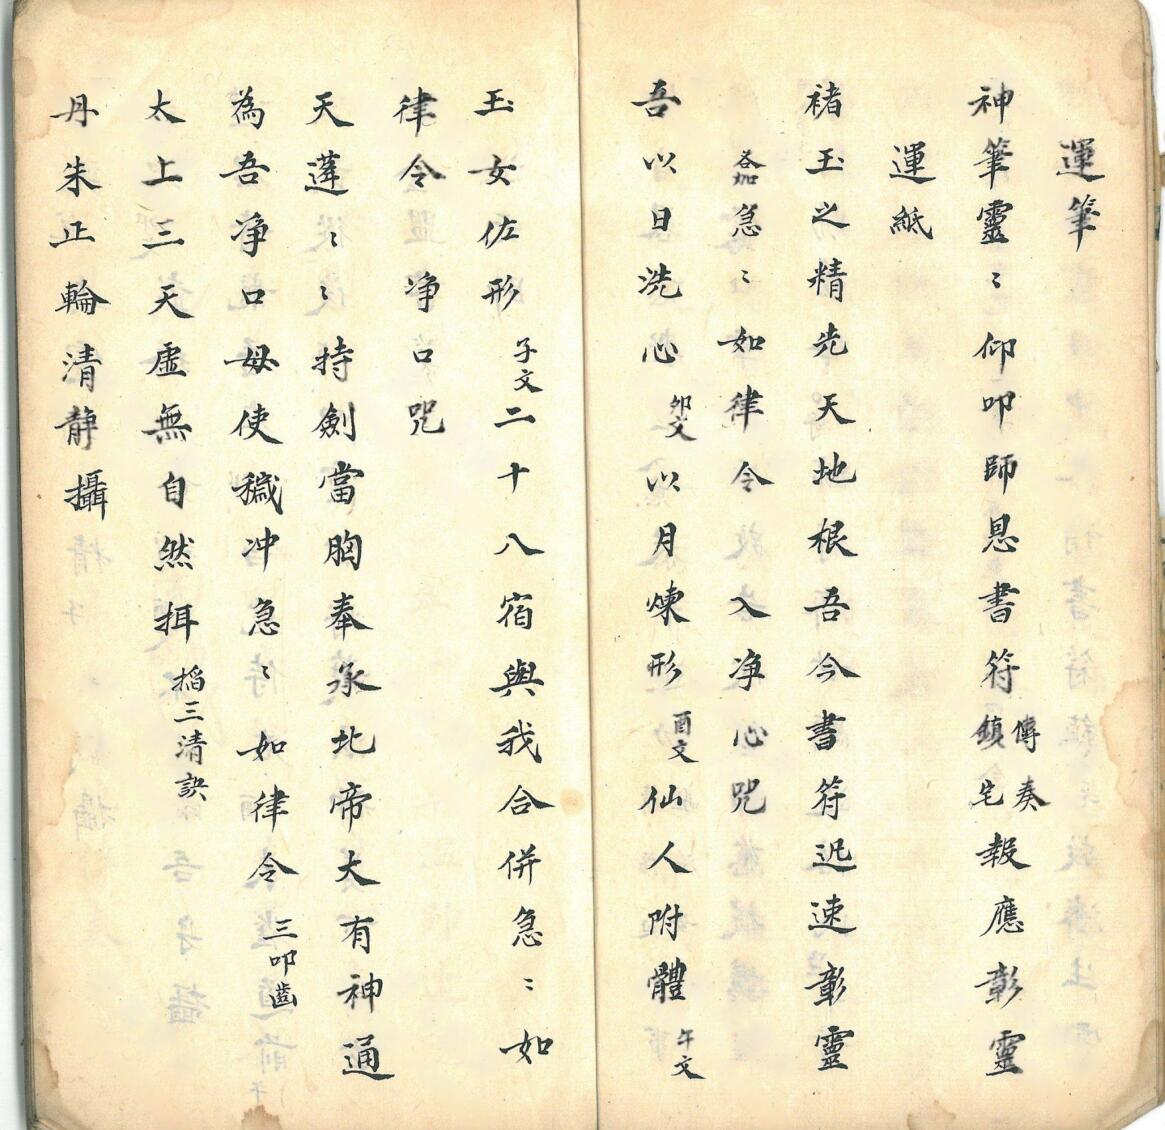 運筆
神筆靈〻仰叩師恩書符傳奏鎮宅報應彰靈
運紙
褚玉之精先天地根吾今書符迅速彰靈
各加急〻如律令入净心咒
吾以日洗心卯文以月煉形酉文仙人附體午文
玉女佐形子文二十八宿與我合併急〻如
律令净口咒
天蓬〻〻持劍當胸奉承北帝大有神通
為吾净口毋使穢冲急〻如律令三叩齒
太上三天虛無自然抇搯三清訣
丹朱正輪清靜攝